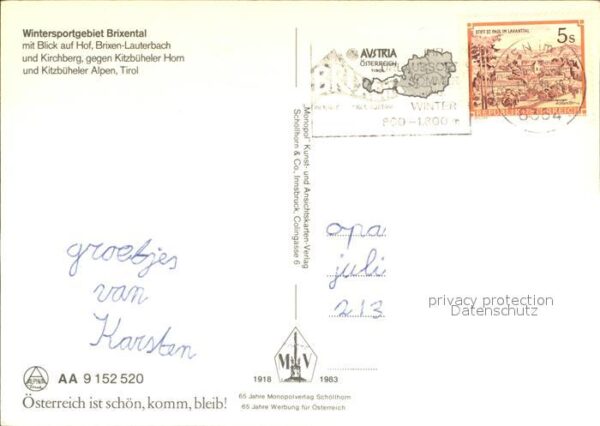 Wintersportgebiet Brixental
mit Blick auf Hof, Brixen-Lauterbach
und Kirchberg, gegen Kitzbüheler Horn
und Kitzbüheler Alpen, Tirol
AUSTRIA
ÖSTERREICH
TIROL
WINTER
800-1.800 m
STIFT ST. PAUL IM LAVANTTAL
5 S
REPUBLIK ÖSTERREICH
„Monopol" Kunst- und Ansichtskarten-Verlag
Schöllhorn & Co., Innsbruck, Colingasse 6
groetjes
van
Karsten
opa
juli
213
privacy protection
Datenschutz
M V
1918 1983
65 Jahre Monopolverlag Schöllhorn
65 Jahre Werbung für Österreich
AA 9 152 520
Österreich ist schön, komm, bleib!